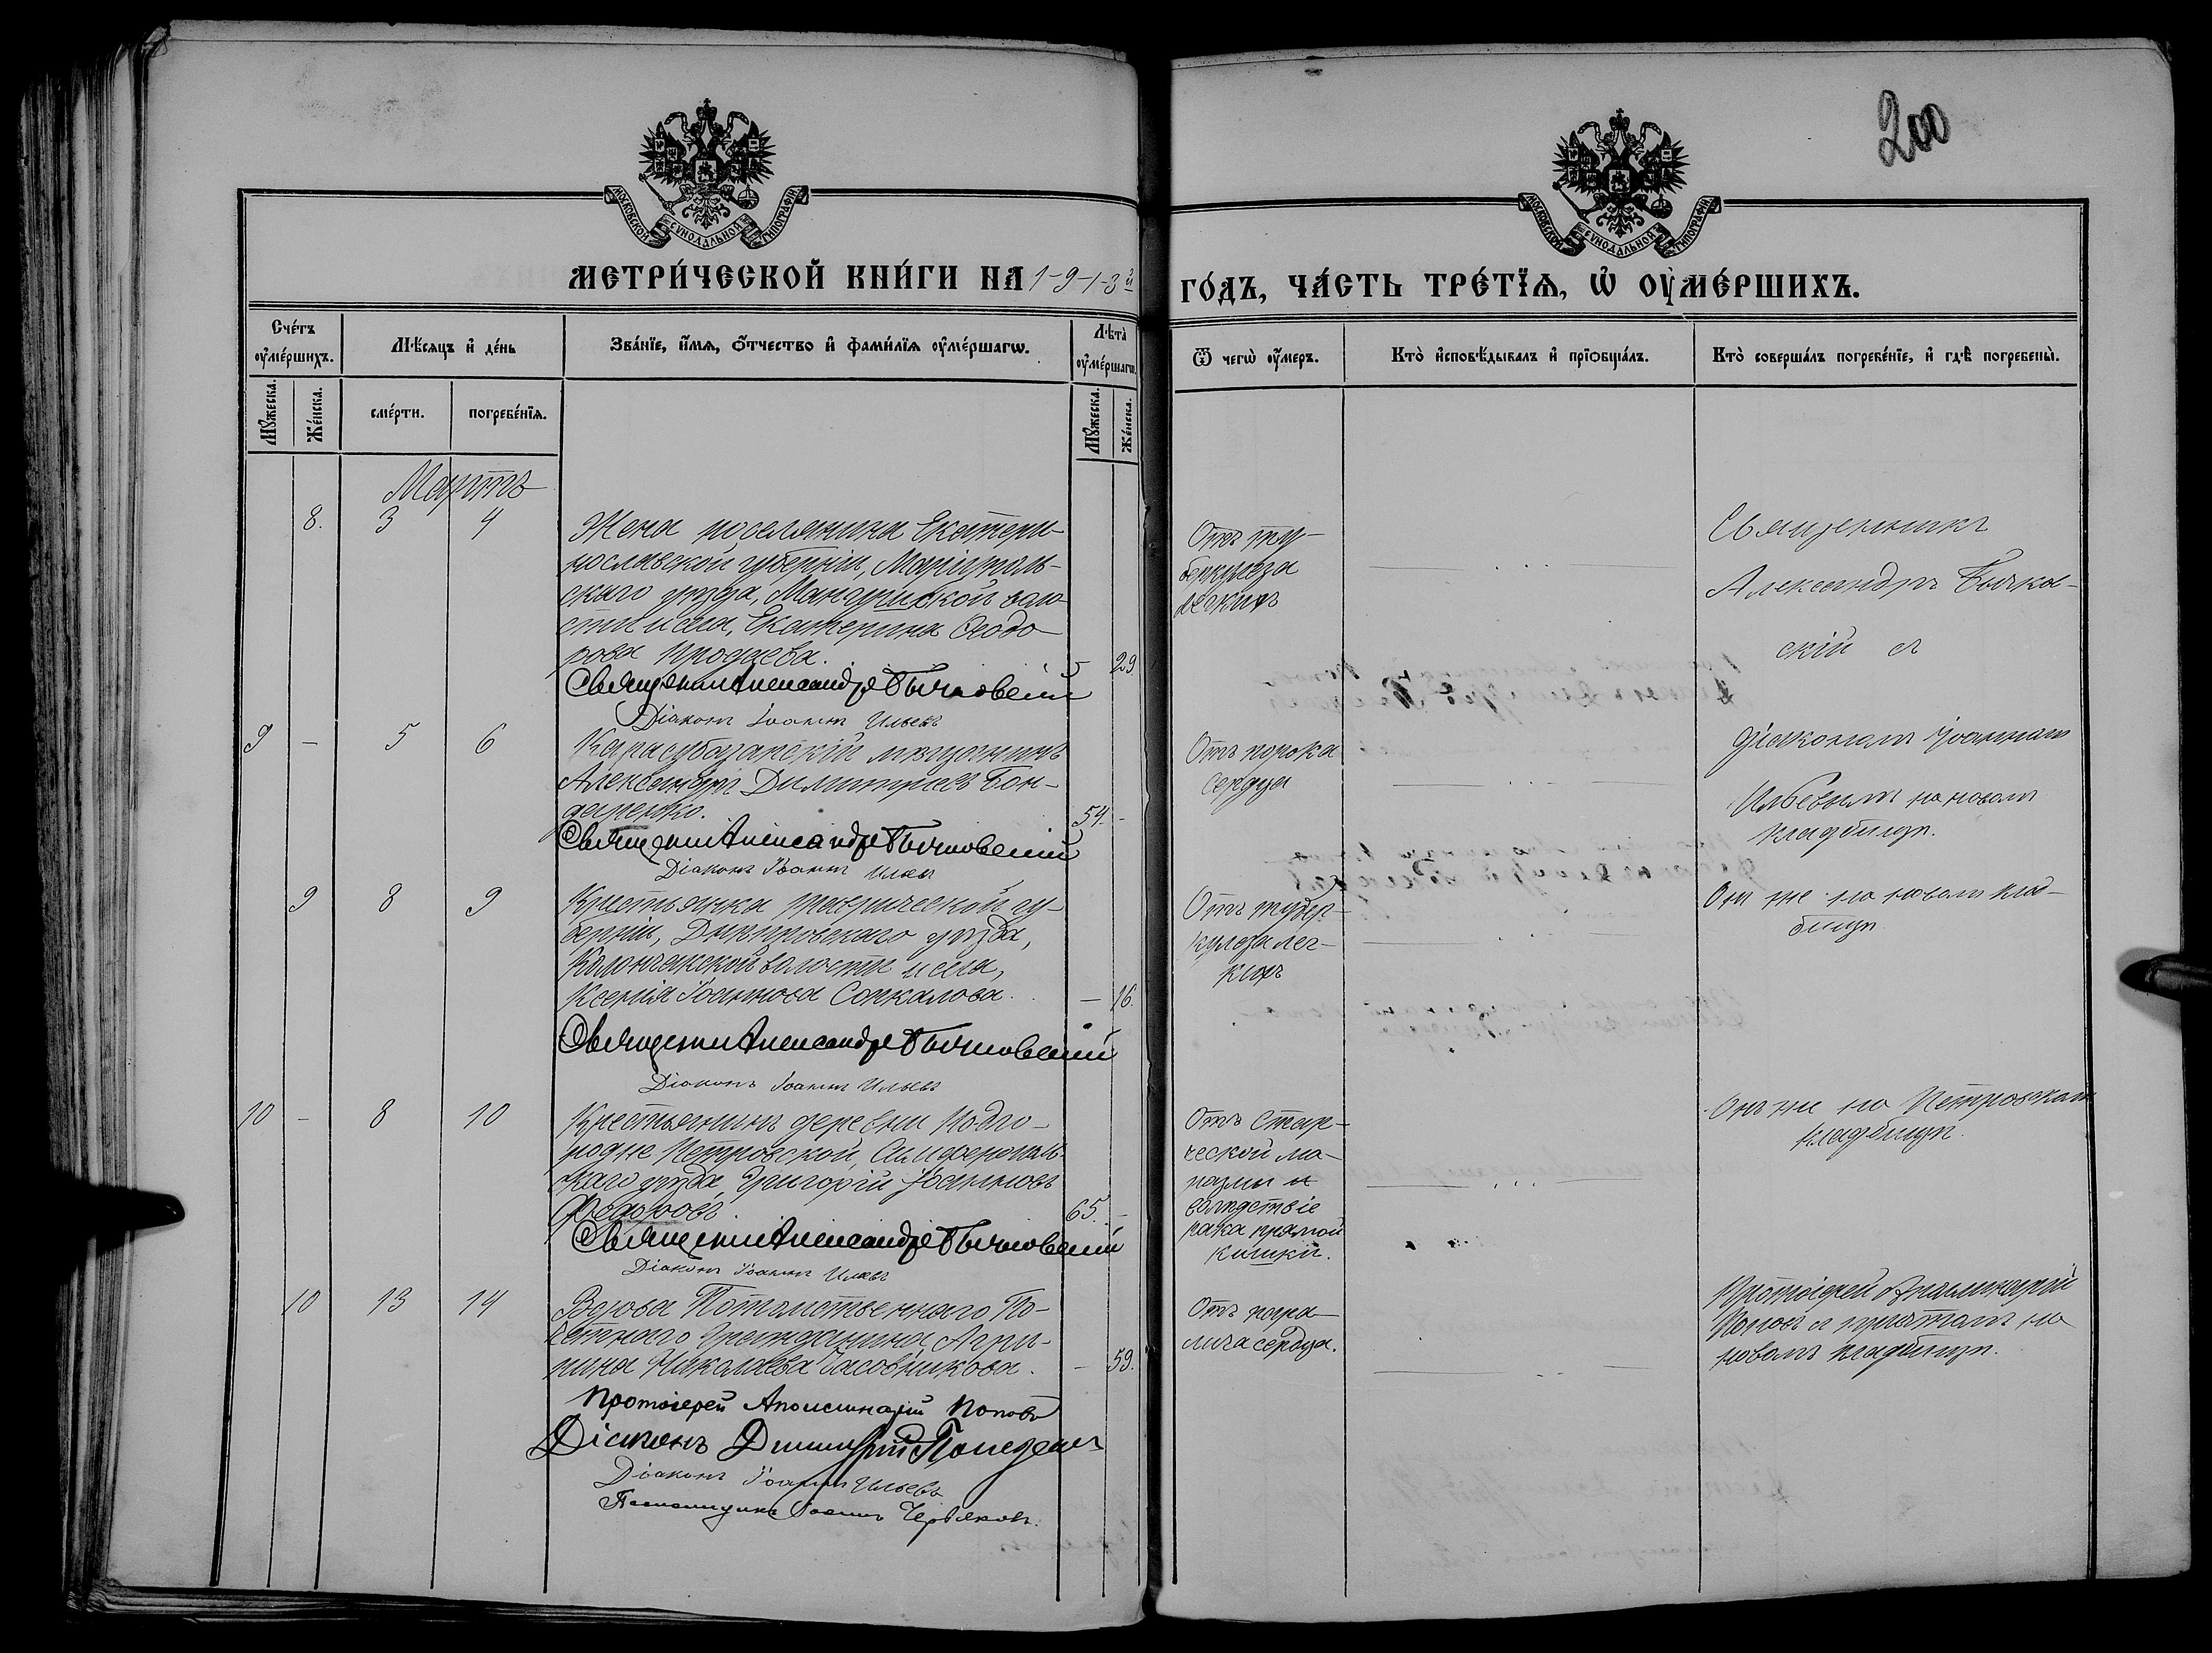 200
МОСКОВСКОЙ СѴНОДАЛЬНОЙ ТИПОГРАФІИ
МОСКОВСКОЙ СѴНОДАЛЬНОЙ ТИПОГРАФІИ
МЕТРИ́ЧЕСКОЙ КНИ́ГИ НА 1913й ГО́ДЪ, ЧА́СТЬ ТРЕ́ТЇѦ, Ѡ҆ ОУ҆МЕ́РШИХЪ.
Сче́тъ оу҆ме́ршихъ.
Мѹ́жеска.
Же́нска.
Мѣ́сѧцъ и҆ де́нь
сме́рти.
погребе́нїѧ.
Зва́нїе, и҆́мѧ, ѻ҆́тчество и҆ фами́лїѧ оу҆ме́ршагѡ.
Лѣ́та оу҆ме́ршагѡ.
Мѹ́жеска.
Же́нска.
Ѿ чегѡ̀ оу҆́меръ.
Кто̀ и҆сповѣ́дывалъ и҆ прїѡбща́лъ.
Кто̀ соверша́лъ погребе́нїе, и҆ гдѣ̀ погребены̀.
Мартъ
8. 3 4
Жена поселянина Екатери-
нославской губерніи, Маріуполь-
скаго уѣзда, Мангушской воло
сти и села, Екатерина Ѳеодо-
рова
29
Священникъ Александръ Бычковскій
Діаконъ Іоаннъ Ильевъ
Отъ ту-
беркулеза
легкихъ
Священникъ
Александръ Бычков-
скій съ
9 - 5 6
Карасубазарскій мѣщанинъ
Александръ Димитріевъ Бон-
даренко.
54. -
Священникъ Александръ Бычковскій
Діаконъ Іоаннъ Ильевъ
Отъ порока
сердца
діакономъ Іоанномъ
Ильевымъ на новомъ
кладбищѣ.
9 8 9
Крестьянка Таврической гу-
берніи, Днѣпровскаго уѣзда,
Каланчакской волости и села,
Ксенія Іоаннова Соркалова.
- 16.
Священникъ Александръ Бычковскій
Діаконъ Іоаннъ Ильевъ
Отъ тубер-
кулеза лег-
кихъ
Они же на новомъ клад-
бищѣ.
10 - 8 10
Крестьянинъ деревни Подго-
родне Петровской, Симферополь-
скаго уѣзда, Григорій Іоанновъ
Ѳедоровъ
65. -
Священникъ Александръ Бычковскій
Діаконъ Іоаннъ Ильевъ
Отъ Стар-
ческой ма-
размы и
вслѣдствіе
рака прямой
кишки.
Они же на Петровскомъ
кладбищѣ.
10 13 14
Вдова Потомственнаго По-
четнаго Гражданина, Агри-
пина Николаева Часовникова.
- 59.
Протоіерей Аполинарій Поповъ
Діаконъ Димитрій
Діаконъ Іоаннъ Ильевъ
Псаломщикъ Іоаннъ Червяковъ.
Отъ пара-
лича сердца.
Протоіерей Аполинарій
Поповъ съ причтомъ на
новомъ кладбищѣ.